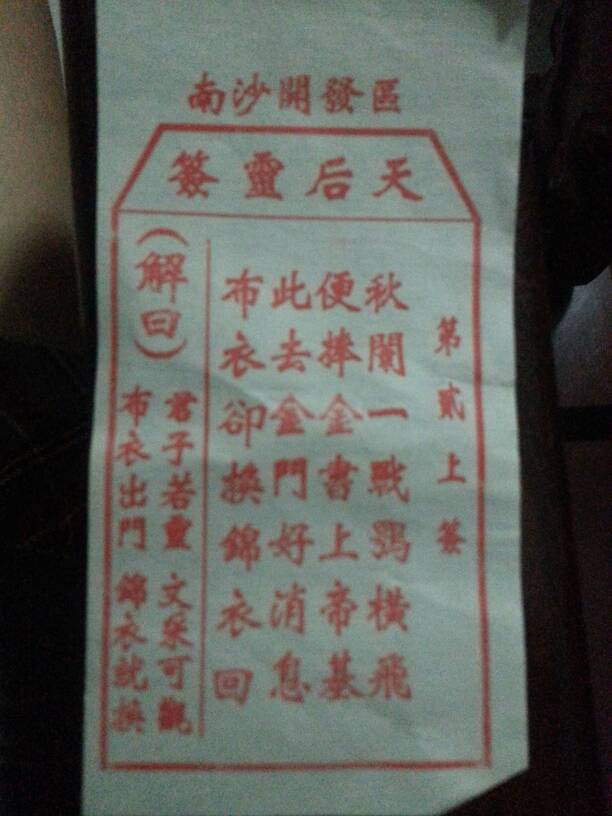 南沙開發區
天后靈簽
第貳上簽
秋闈一戰鶚橫飛
便捧金書上帝基
此去金門好消息
布衣卻換錦衣回
(解曰)
君子若重 文采可觀
布衣出門 錦衣就換